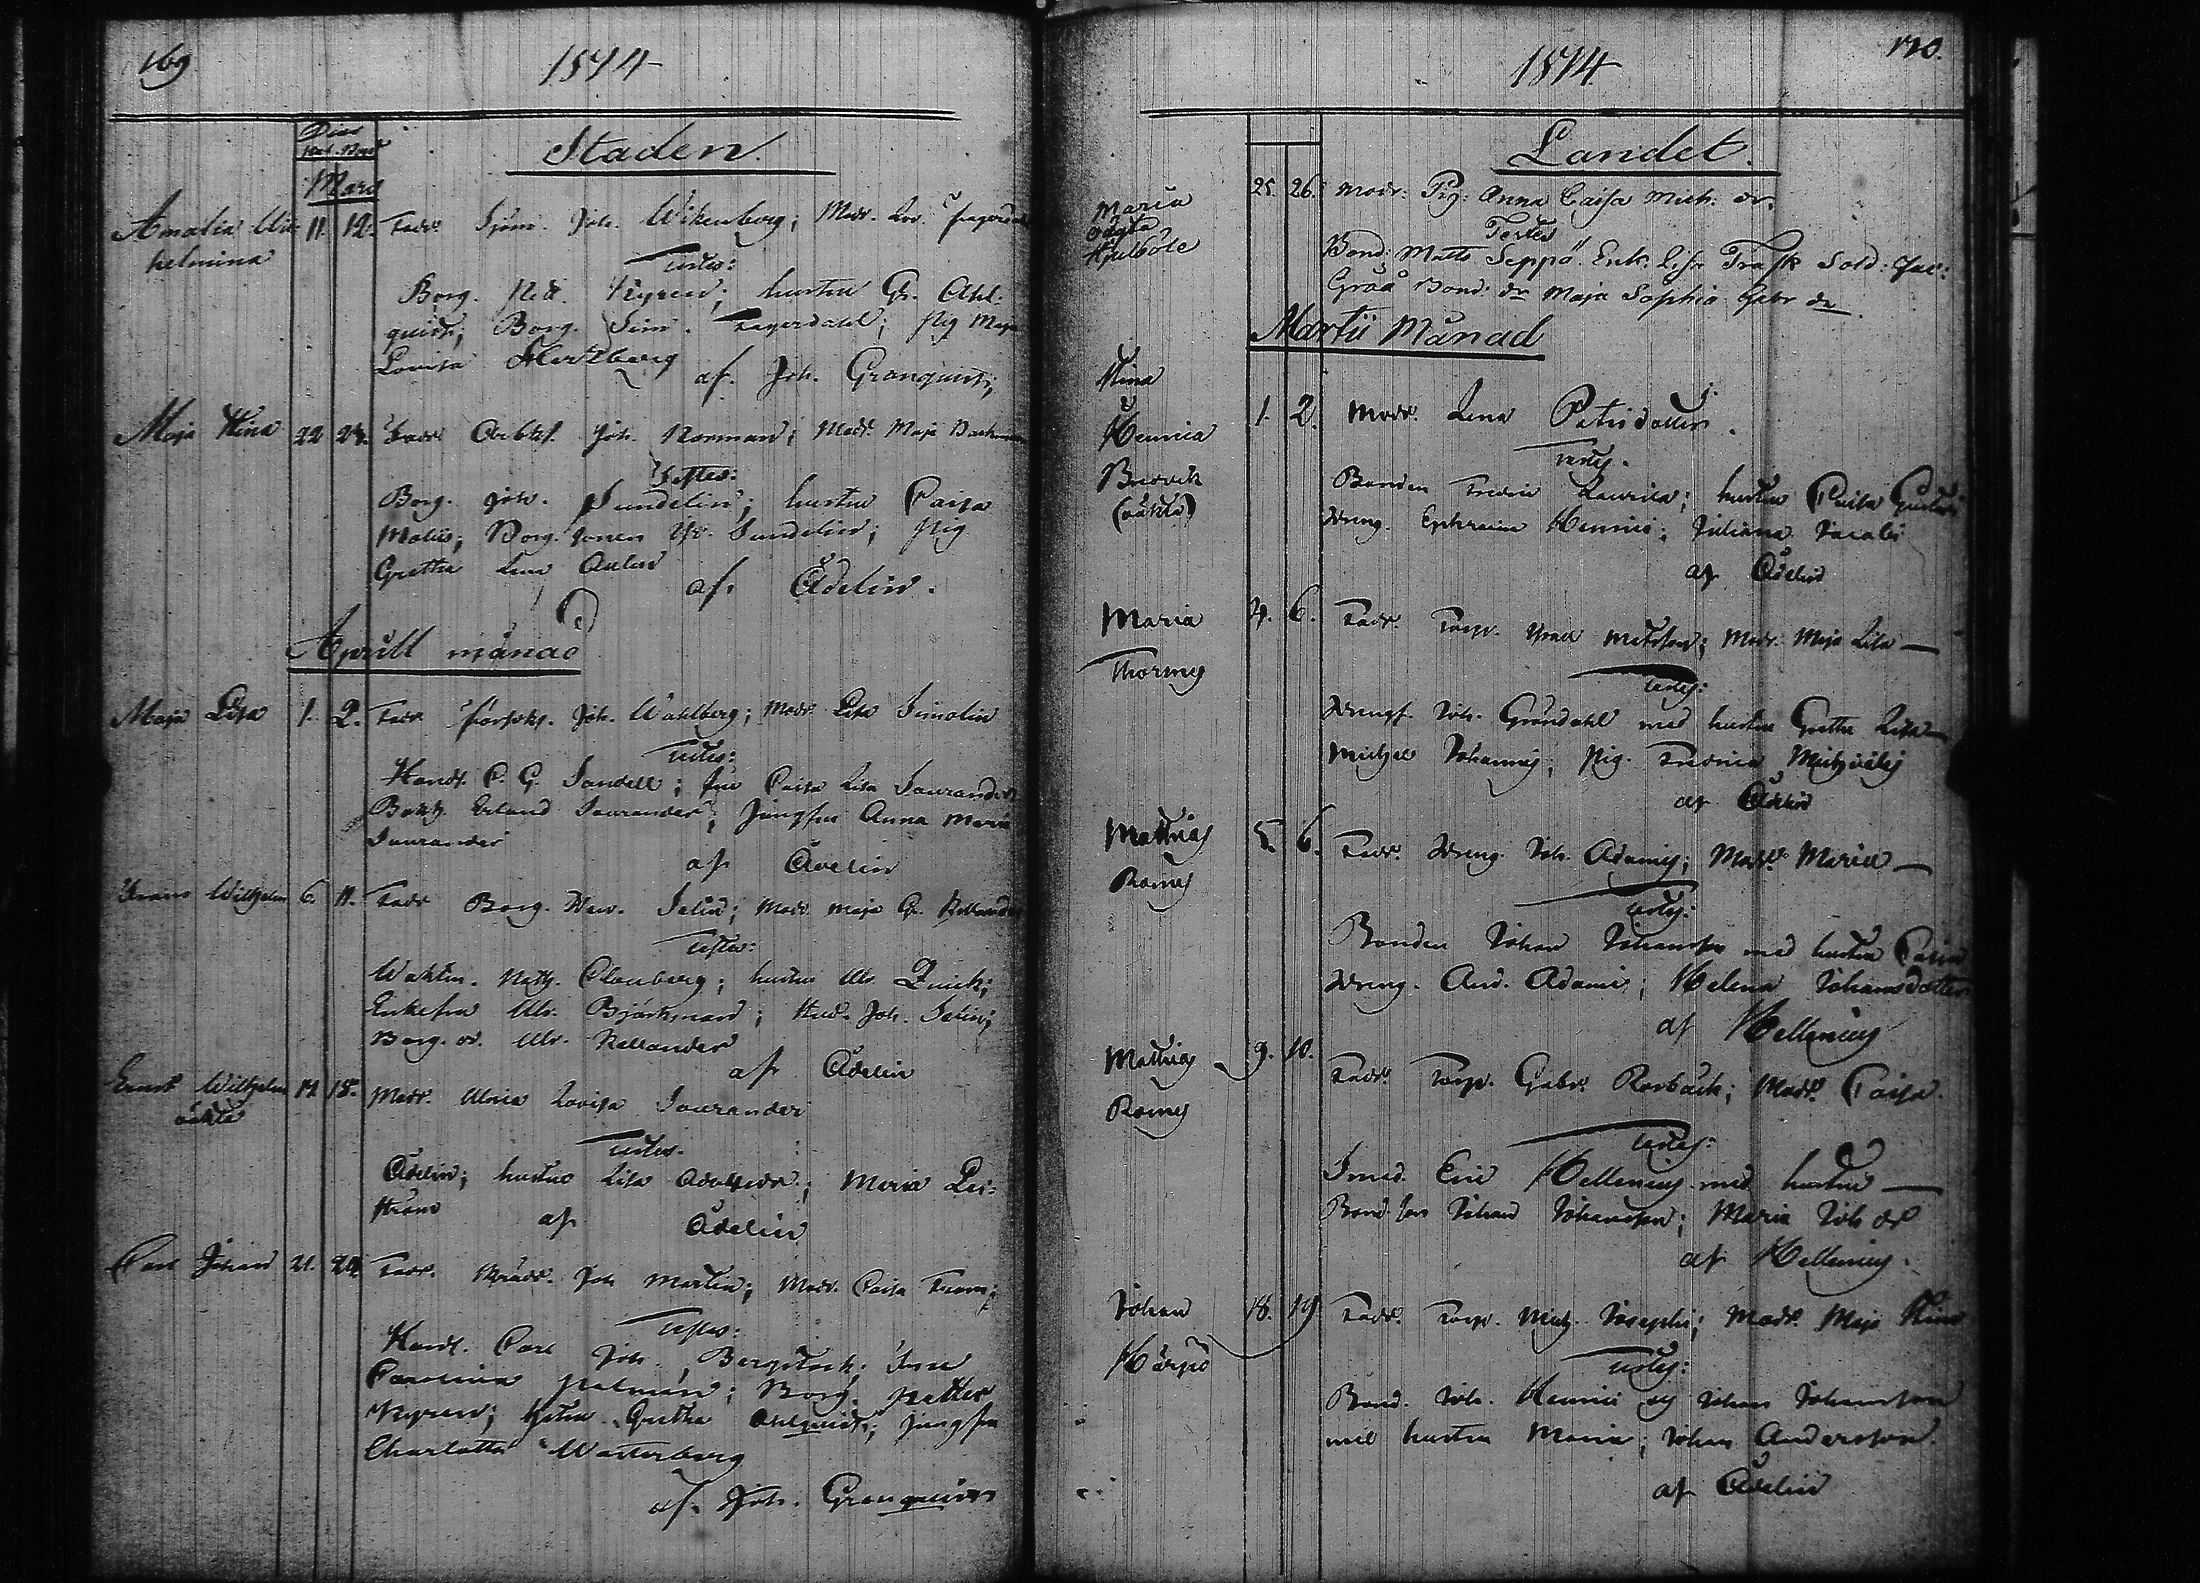 169
1844
Dies
Nat. Bapt
Staden.
Mars
Amalia Wil-
helmina
11. 12. Fadr Sjöm. Joh. Wikenberg; Modr. Lov. Fagerdahl
Testes:
Borg. Petr. Nyren; hustru Gr. Ahl-
quist; Borg. Sim. Fagerdahl; Pig Maja
Lovisa Hertzberg
af. Joh. Granquist;
Maja Stina 22 24. Fadr Arbksf. Joh. Norman; Modr. Maja Backman
Testes:
Borg. Joh. Sundelin; hustru Caisa
Malus; Borg. sonen Sundelin; Pig
Gretha Lena
af. Ådelin.
Aprill månad
Maja Lisa 1. 2. Fadr Joh. Wahlberg; Modr. Lisa Simolin
Testes:
Handl. C. G. Sandell; Fru Caisa Lisa Saurander
Bokh. Erland Saurander; Jungfru Anna Maria
Saurander
af Ådelin
Frans Wilhelm 6. 11. Fadr Borg. Salin; Modr. Maja Gr. Kellander
Testes:
Waktm. Math. Clouberg; hustru Ulr. Quick;
Enkefru Ulr. Björkman; Joh. Salin;
Borg. dr. Ulr. Kellander
af Ådelin
Ernst Wilhelm
oäkta
17 18. Modr. Ulrica Lovisa Saurander
Testes.
Ådelin; hustru Lisa; Maria Lei-
ström
af Ådelin
Carl Johan 21. 24. Fadr. Joh Martin; Modr. Caisa From;
Testes:
Handl. Carl Joh. Bergstock; Fru
Carolina Palmén; Borg. Petter
Nyren; hustru Gretha Ahlquist; Jungfru
Charlotta Westerberg
af. Joh. Granquist
170.
1844
Landet.
Maria
oägta
Hjulböle
25. 26. Modr: Pig: Anna Caisa Mich: dr.
Testes
Bond: Matts Seppä. Enk: Lisa Trask Sold: Jac:
Grää Bond: dr Maja Sophia Gabr dr
Martii Månad
Stina
Hennia
Bnovik
(oäkta)
1. 2. Modr. Lena Petri dotter.
Testes.
Bonden Fredric Laurila; hustru Caisa Gustaf
Dreng. Ephraim Henrici; Juliana Jacobi
af Ådelin
Maria
Thorsnes
4. 6. Fadr. Torp. Matsson; Modr. Maja Lisa —
Testes:
Drengf. Joh. Gröndahl med hustru Gretha Lisa
Michael Johannis; Pig. Fredrica Michaelis
af Ådelin
Mathias
Romes
5. 6. Fadr. Dreng. Joh. Adami; Modr. Maria —
Testes:
Bonden Johan Johansson med hustru Caisa
Dreng. And. Adami; Helena Johansdotter
af Hellenius
Mathias
Romes
9. 10. Fadr. Torp. Gabr. Rosback; Modr. Caisa.
Testes:
Smed. Eric Hellenius med hustru —
Bond. son Johan Johansson; Maria Joh dr
af Hellenius.
Johan
Härpö
18. 19 Fadr. Torp. Mich. Josephi; Modr. Maja Stina
Testes:
Bond. Joh. Henrici och Johan Johansson
med hustru Maria; Johan Andersson.
af Ådelin